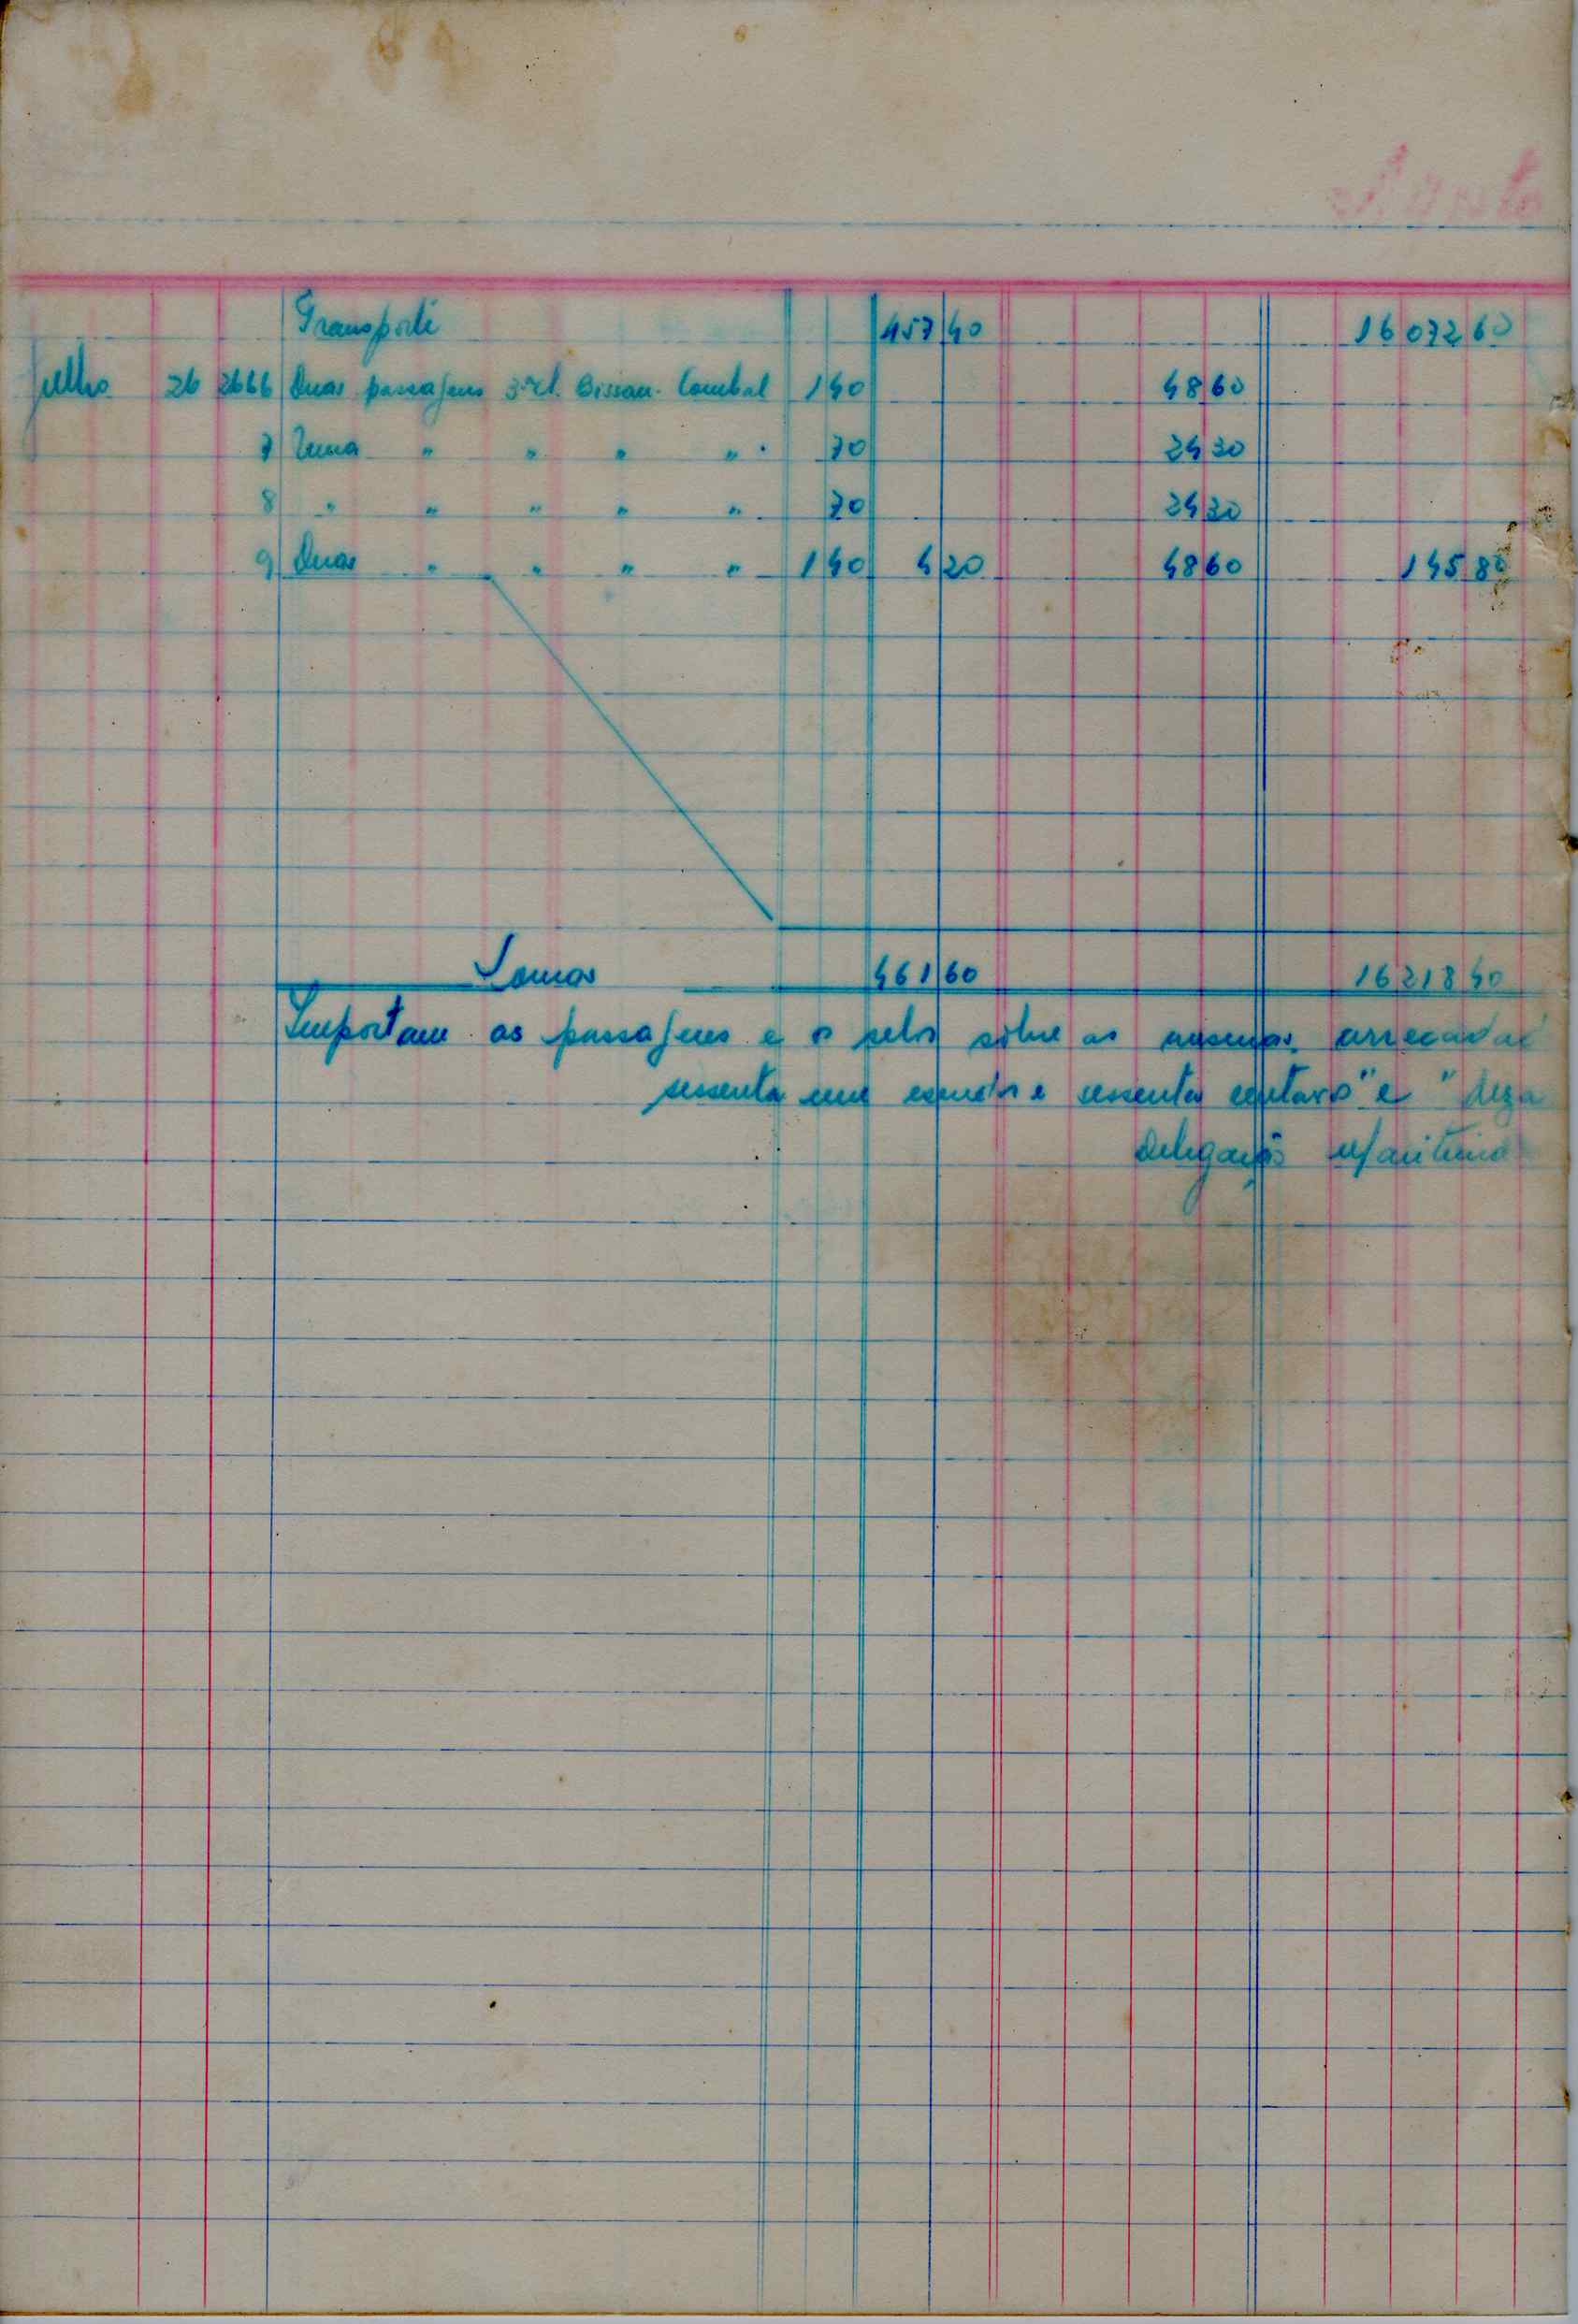 Transporte 457 40 16 072 60
Julho 26 2666 Duas passagens 3ª cl. Bissau-Combal 1 40 48 60
7 Uma " " " " 70 24 30
8 " " " " " 70 24 30
9 Duas " " " " 1 40 4 20 48 60 145 80
Somas 461 60 16 218 40
Importam as passagens e os selos sôbre as mesmas, arrecadad
sessenta um escudos e sessenta centavos" e "deza
Delegação Maritima